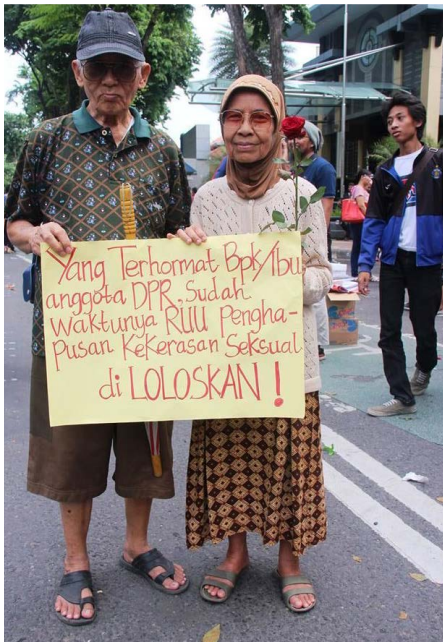 Yang Terhormat Bpk/Ibu
anggota DPR, Sudah
waktunya RUU Pengha-
pusan Kekerasan Seksual
di LOLOSKAN !